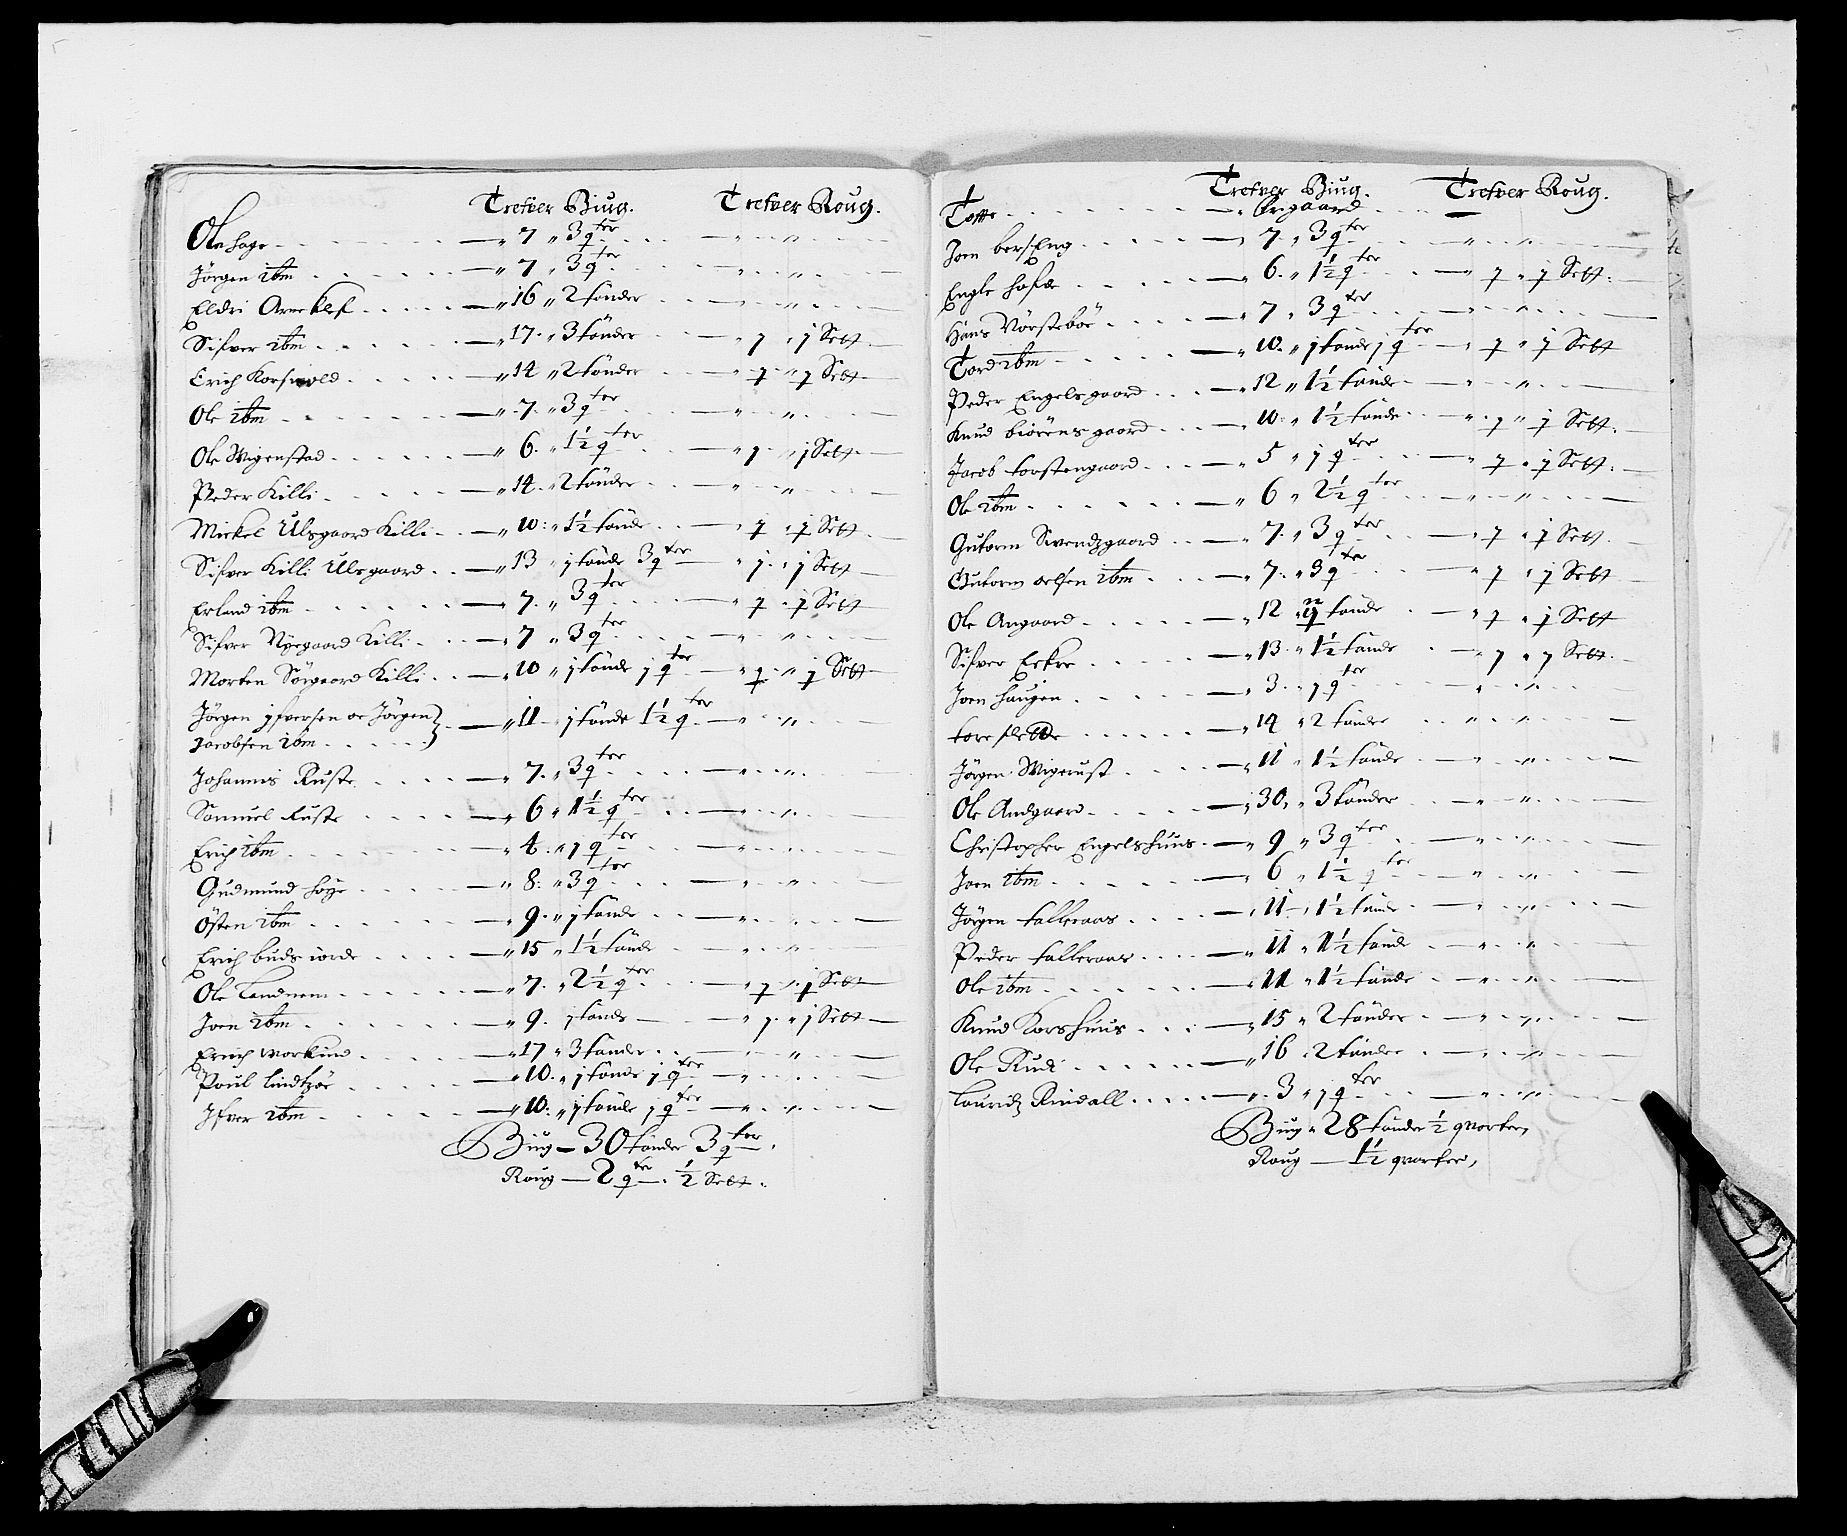 Trefver Biug. Trefver Roug.
Ole hage — „ 7 „ 3 qter — „ „
Jörgen ibm — „ 7 „ 3 qter „ „
Eldri Arneklef — „ 16 „ 2 tönder „ „
Sifver ibm — „ 17 „ 3 tönder — „ 1 „ 1 Sett
Erich Korsvold — „ 14 „ 2 tönder — „ 1 „ 1 Sett
Ole ibm — „ 7 „ 3 qter — „ „
Ole Wigenstad — „ 6 „ 1½ qter „ 1 „ 1 Sett
Peder Killi — „ 14 „ 2 tönder — „ „
Mickel Ulsgaard Killi — „ 10 „ 1½ tönde — „ 1 „ 1 Sett
Sifver Killi Ulsgaard — „ 13 „ 1 tönde 3 qter — „ 1 „ 1 Sett
Erland ibm — „ 7 „ 3 qter — „ 1 „ 1 Sett
Sifver Nyegaard Killi — „ 7 „ 3 qter — „ „
Morten Sörgaard Killi — „ 10 „ 1 tönde 1 qter — „ 1 „ 1 Sett
Jörgen Ifversen oc Jörgen
Jacobsen ibm — „ 11 1 tönde 1½ qter — „ „
Johannis Ruste — „ 7 „ 3 qter — „ „
Samuel Ruste — „ 6 „ 1½ qter — „ „
Erich ibm — „ 4 „ 1 qter „ „
Gudmund höye — „ 8 „ 3 qter — „ „
Östen ibm — „ 9 „ 1 tönde — „ „
Erich budsiorde — „ 15 „ 1½ tönde „ „
Ole Landnem — „ 7 „ 2½ qter — „ 1 „ 1 Sett
Joen ibm — „ 9 1 tönde — „ 1 „ 1 Sett
Erich workind — „ 17 „ 3 tönder — „ „
Poul lindsöe — „ 10 „ 1 tönde 1 qter — „ „
Ifver ibm — „ 10 „ 1 tönde 1 qter — „ „
Biug — 30 tönder 3 qter
Roug — 2 qter ½ Sett.
Trefver Biug. Trefver Roug.
Tofte — „ Ørgaard —
Joen berseng — „ 7 „ 3 qter „ „
Engle hafve — „ 6 „ 1½ qter — „ 1 „ 1 Sett
Hans Vörsteböe — „ 7 „ 3 qter — „ „
Tord ibm — „ 10 „ 1 tönde 1 qter „ 1 „ 1 Sett
Peder Engelsgaard — „ 12 „ 1½ tönde — „ „
Knud biörensgaard — „ 10 „ 1½ tönde — „ 1 „ 1 Sett
Jacob torstengaard — „ 5 „ 1 qter — „ 1 „ 1 Sett
Ole ibm — „ 6 „ 2½ qter „ „
Gutorm Svendzgaard — „ 7 „ 3 qter — „ 1 „ 1 Sett
Gutorm oelsen ibm — „ 7 „ 3 qter „ 1 „ 1 Sett
Ole Angaard — „ 12 „ 2 tönde — „ 1 „ 1 Sett
Sifver Eckre — „ 13 „ 1½ tönde — „ 1 „ 1 Sett
Joen haugen — „ 3 „ 1 qter — „ „
tore slette — „ 14 „ 2 tönder „ „
Jörgen Wigerust — „ 11 „ 1½ tönde „ „
Ole Andgaard — „ 30 „ 3 tönder „ „
Christopher Engelshuus — „ 9 „ 3 qter — „ „
Joen ibm — „ 6 „ 1½ qter — „ „
Jörgen talleraas — „ 11 „ 1½ tönde „ „
Peder talleraas — „ 11 „ 1½ tönde — „ „
Ole ibm — „ 11 „ 1½ tönde — „ „
Knud Korshuus — „ 15 „ 2 tönder — „ „
Ole Rud — „ 16 „ 2 tönder — „ „
Lauridz Rindall — „ 3 „ 1 qter — „ „
Biug „ 28 tönder ½ qvarter,
Roug — 1½ qvarter,